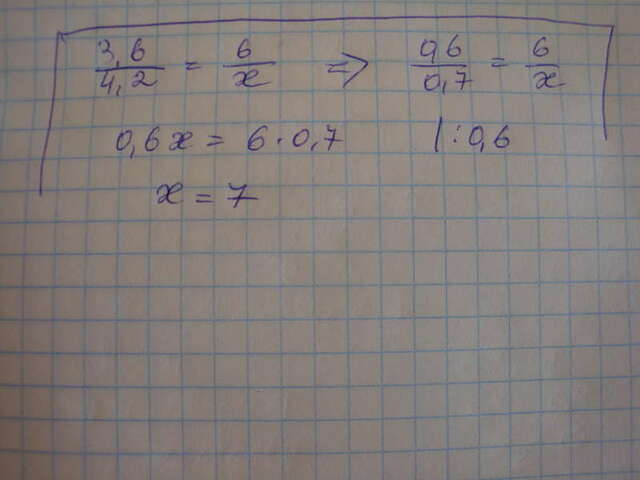 3,6/4,2 = 6/x => 0,6/0,7 = 6/x
0,6x = 6·0,7 |:0,6
x = 7